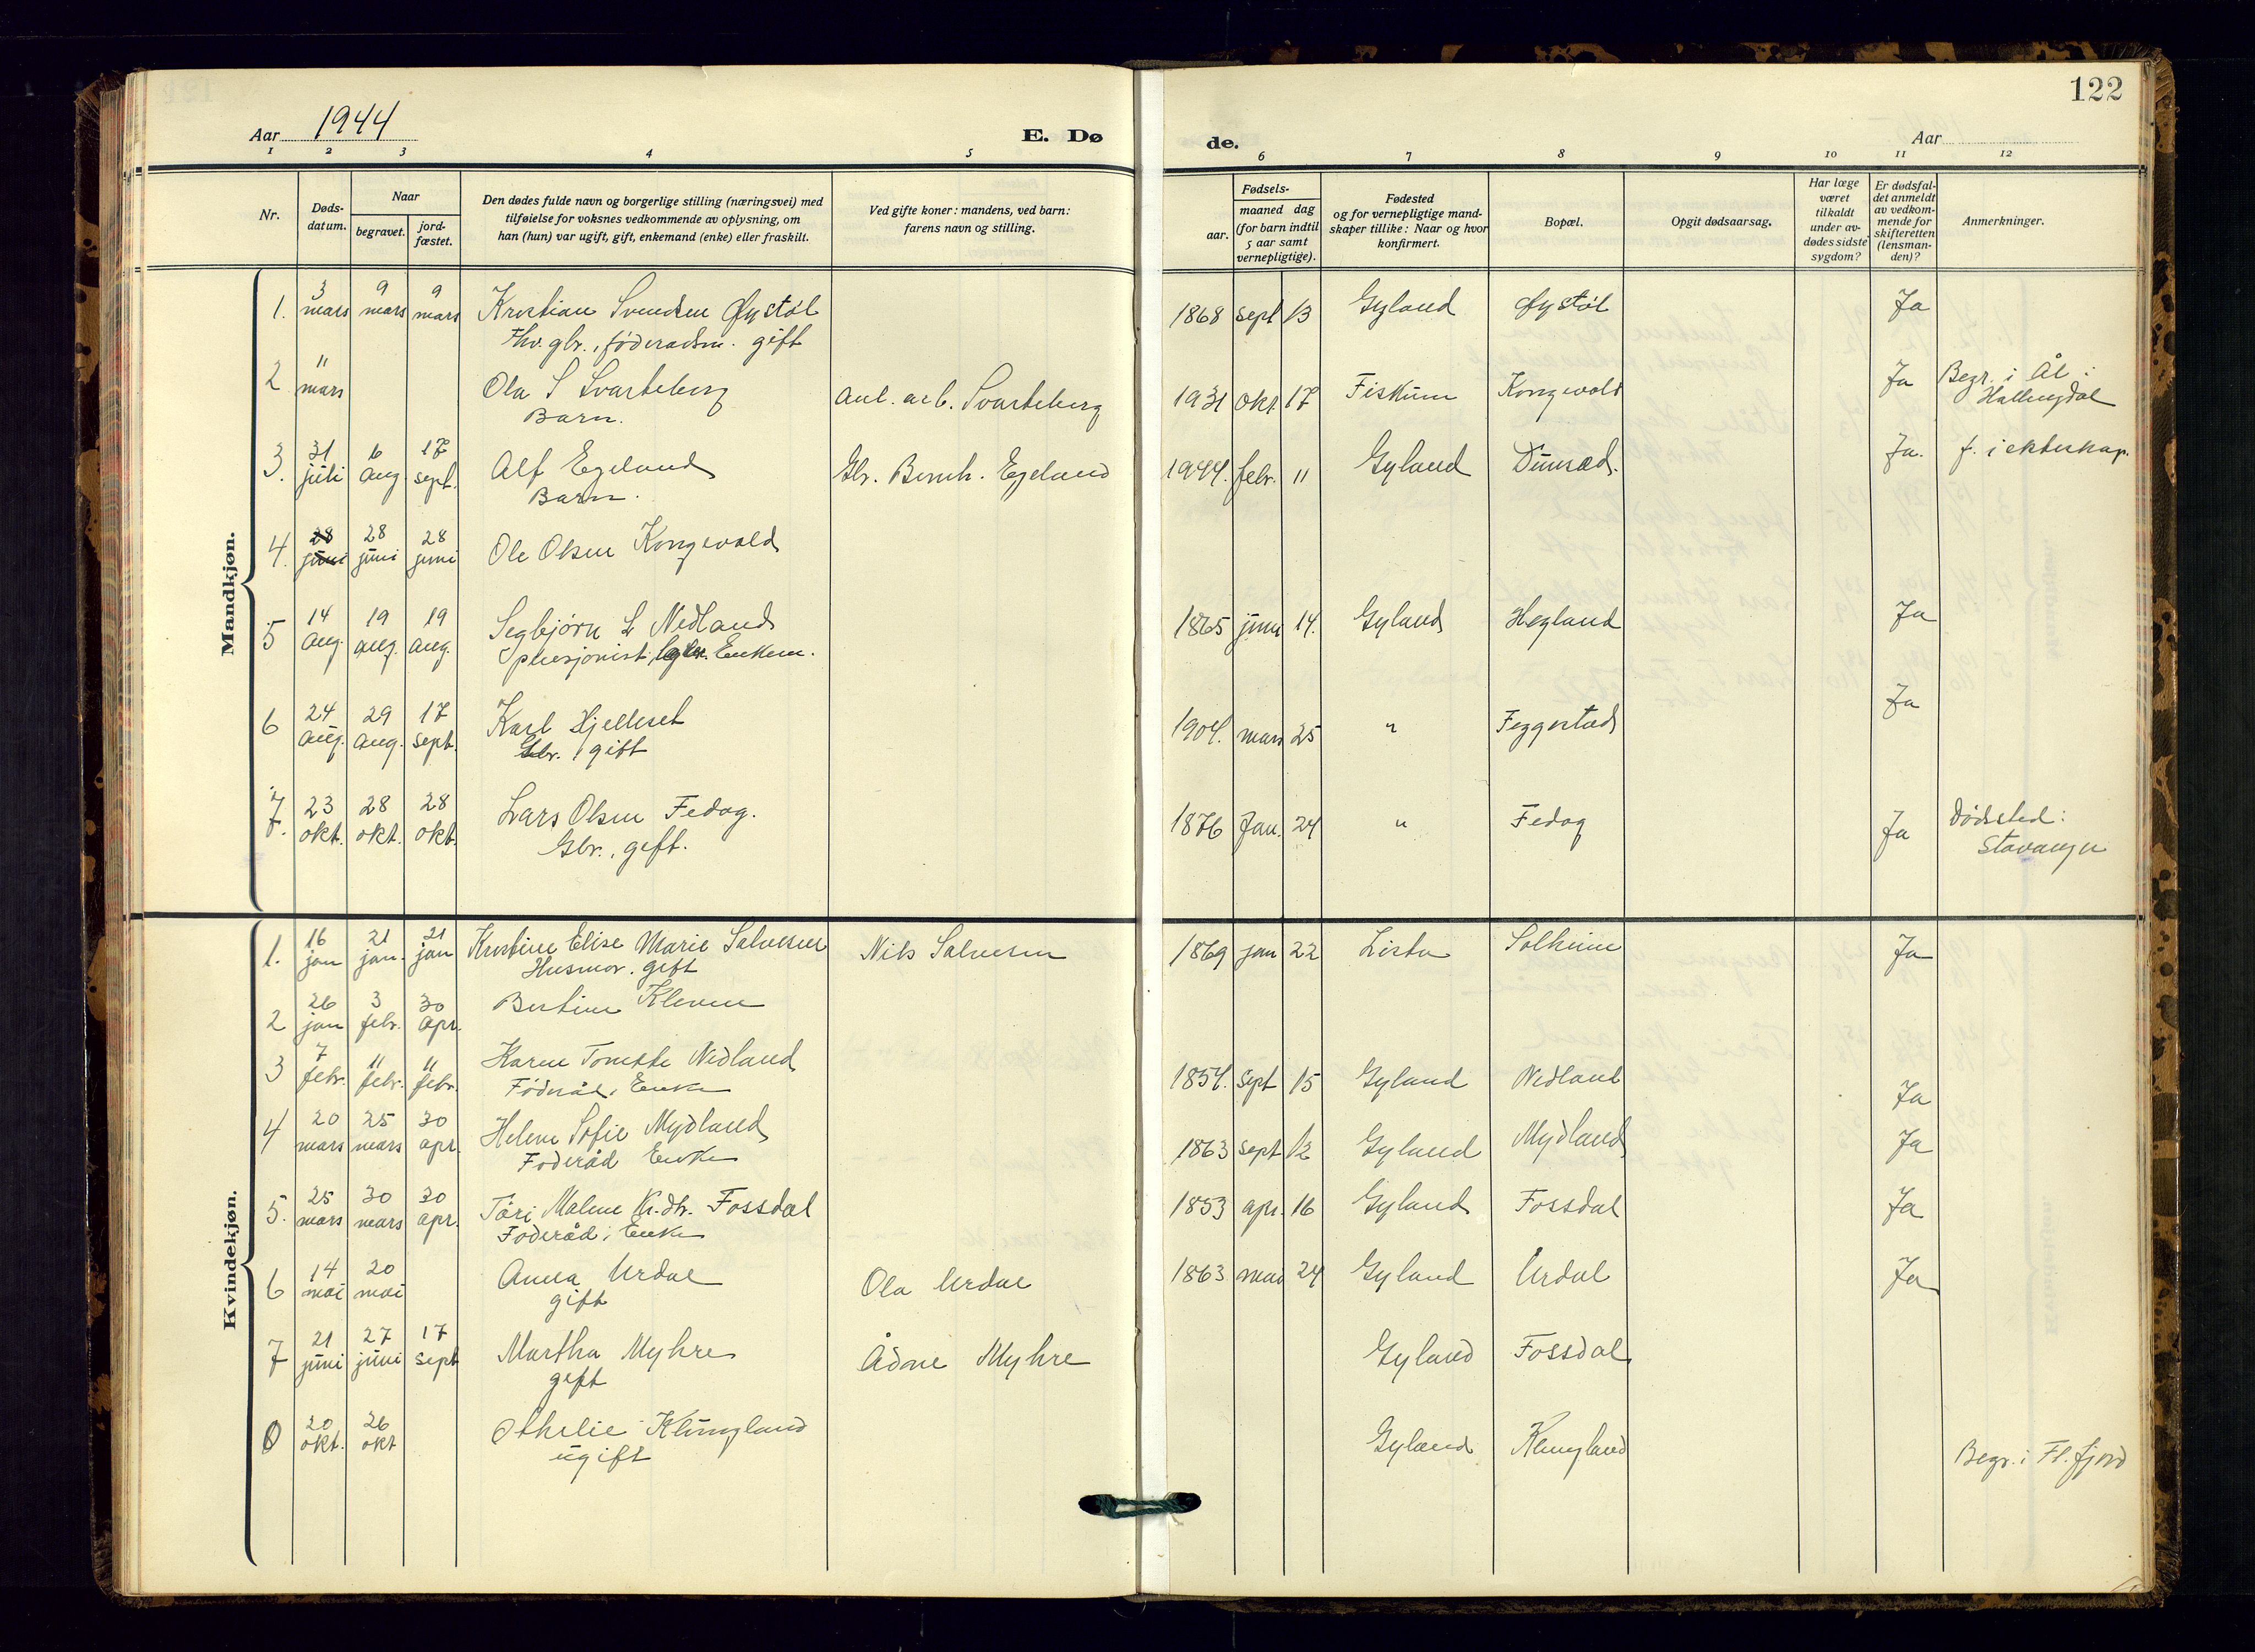 122
Aar 1944
E. Dø
de.
Aar
1 2 3 4 5
6 7 8 9 10 11 12
Nr.
Døds-
datum.
Naar
begravet.
jord-
fæstet.
Den dødes fulde navn og borgerlige stilling (næringsvei) med
tilføielse for voksnes vedkommende av oplysning, om
han (hun) var ugift, gift, enkemand (enke) eller fraskilt.
Ved gifte koner: mandens, ved barn:
farens navn og stilling.
Fødsels-
aar.
maaned dag
(for barn indtil
5 aar samt
vernepligtige).
Fødested
og for vernepligtige mand-
skaper tillike: Naar og hvor
konfirmert.
Bopæl.
Opgit dødsaarsag.
Har læge
været
tilkaldt
under av-
dødes sidste
sygdom?
Er dødsfal-
det anmeldt
av vedkom-
mende for
skifteretten
(lensman-
den)?
Anmerkninger.
Mandkjøn.
3 9 9
1. mars mars mars Kristian Svendsen Øystøl 1868 sept 13 Gyland Øystøl Ja
Fhv. gbr., føderaadsm. gift
11
2 mars Ola S Svarteberg Anl. arb. Svarteberg 1931 okt. 17 Fiskum Kongevold Ja Begr. i Ål i
Barn. Hallingdal
31 6 17
3. juli aug sept. Alf Egeland Gbr. Bernh. Egeland 1944. febr. 11 Gyland Dunsæd. Ja. f. i ekteskap.
Barn.
28 28 28
4. juni juni juni Ole Olsen Kongevold
14 19 19
5 aug. aug. aug. Segbjørn L Nedland 1865 juni 14. Gyland Hegland Ja
pensjonist, Enkem.
24 29 17
6 aug. aug. sept. Karl Hjelleset 1904. mars 25 " Feggestad Ja
Gbr. gift
23 28 28
7. okt. okt. okt. Lars Olsen Fedog. 1876 Jan. 24 " Fedog Ja Dødsted:
Gbr., gift. Stavanger
Kvindekjøn.
16 21 21
1. jan jan. jan Kristine Elise Marie Salvesen Nils Salvesen 1869 jan 22 Lista Solheim Ja
Husmor. gift
26 3 30
2 jan febr. apr. Bertine Kleven
7 11 11
3 febr. febr. febr. Karen Tomette Nedland 1854. sept 15 Gyland Nedland Ja
Føderåd, Enke
20 25 30
4 mars mars apr. Helene Sofie Mydland 1863 sept 12 Gyland Mydland Ja
Føderåd Enke
25 30 30
5. mars mars apr. Tåri Malene Kr.dtr. Fossdal 1853 apr. 16 Gyland Fossdal Ja
Føderåd, Enke
14 20
6 mai mai Anna Urdal Ola Urdal 1863 mai 24 Gyland Urdal Ja
gift
21 27 17
7 juni juni sept Martha Myhre Ådne Myhre Gyland Fossdal
gift
20 26
8 okt. okt Othelie Klungland Gyland Klungland Begr. i Fl. fjord
ugift